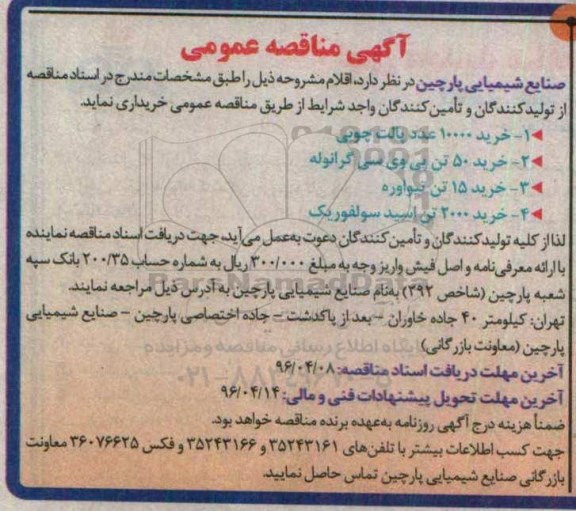 آگهی مناقصه عمومی
صنایع شیمیایی پارچین در نظر دارد، اقلام مشروحه ذیل را طبق مشخصات مندرج در اسناد مناقصه
از تولیدکنندگان و تأمین‌کنندگان واجد شرایط از طریق مناقصه عمومی خریداری نماید.
۱- خرید ۱۰۰۰۰ عدد پالت چوبی
۲- خرید ۵۰ تن پی وی سی گرانوله
۳- خرید ۱۵ تن تیواوره
۴- خرید ۲۰۰۰ تن اسید سولفوریک
لذا از کلیه تولیدکنندگان و تأمین‌کنندگان دعوت به‌عمل می‌آید، جهت دریافت اسناد مناقصه نماینده
با ارائه معرفی‌نامه و اصل فیش واریز وجه به مبلغ ۳۰۰/۰۰۰ ریال به شماره حساب ۲۰۰/۳۵ بانک سپه
شعبه پارچین (شاخص ۳۹۲) به‌نام صنایع شیمیایی پارچین به آدرس ذیل مراجعه نمایند.
تهران: کیلومتر ۴۰ جاده خاوران - بعد از پاکدشت - جاده اختصاصی پارچین - صنایع شیمیایی
پارچین (معاونت بازرگانی)
آخرین مهلت دریافت اسناد مناقصه: ۹۶/۰۴/۰۸
آخرین مهلت تحویل پیشنهادات فنی و مالی: ۹۶/۰۴/۱۴
ضمناً هزینه درج آگهی روزنامه به‌عهده برنده مناقصه خواهد بود.
جهت کسب اطلاعات بیشتر با تلفن‌های ۳۵۲۴۳۱۶۱ و ۳۵۲۴۳۱۶۶ و فکس ۳۶۰۷۶۶۲۵ معاونت
بازرگانی صنایع شیمیایی پارچین تماس حاصل نمایید.